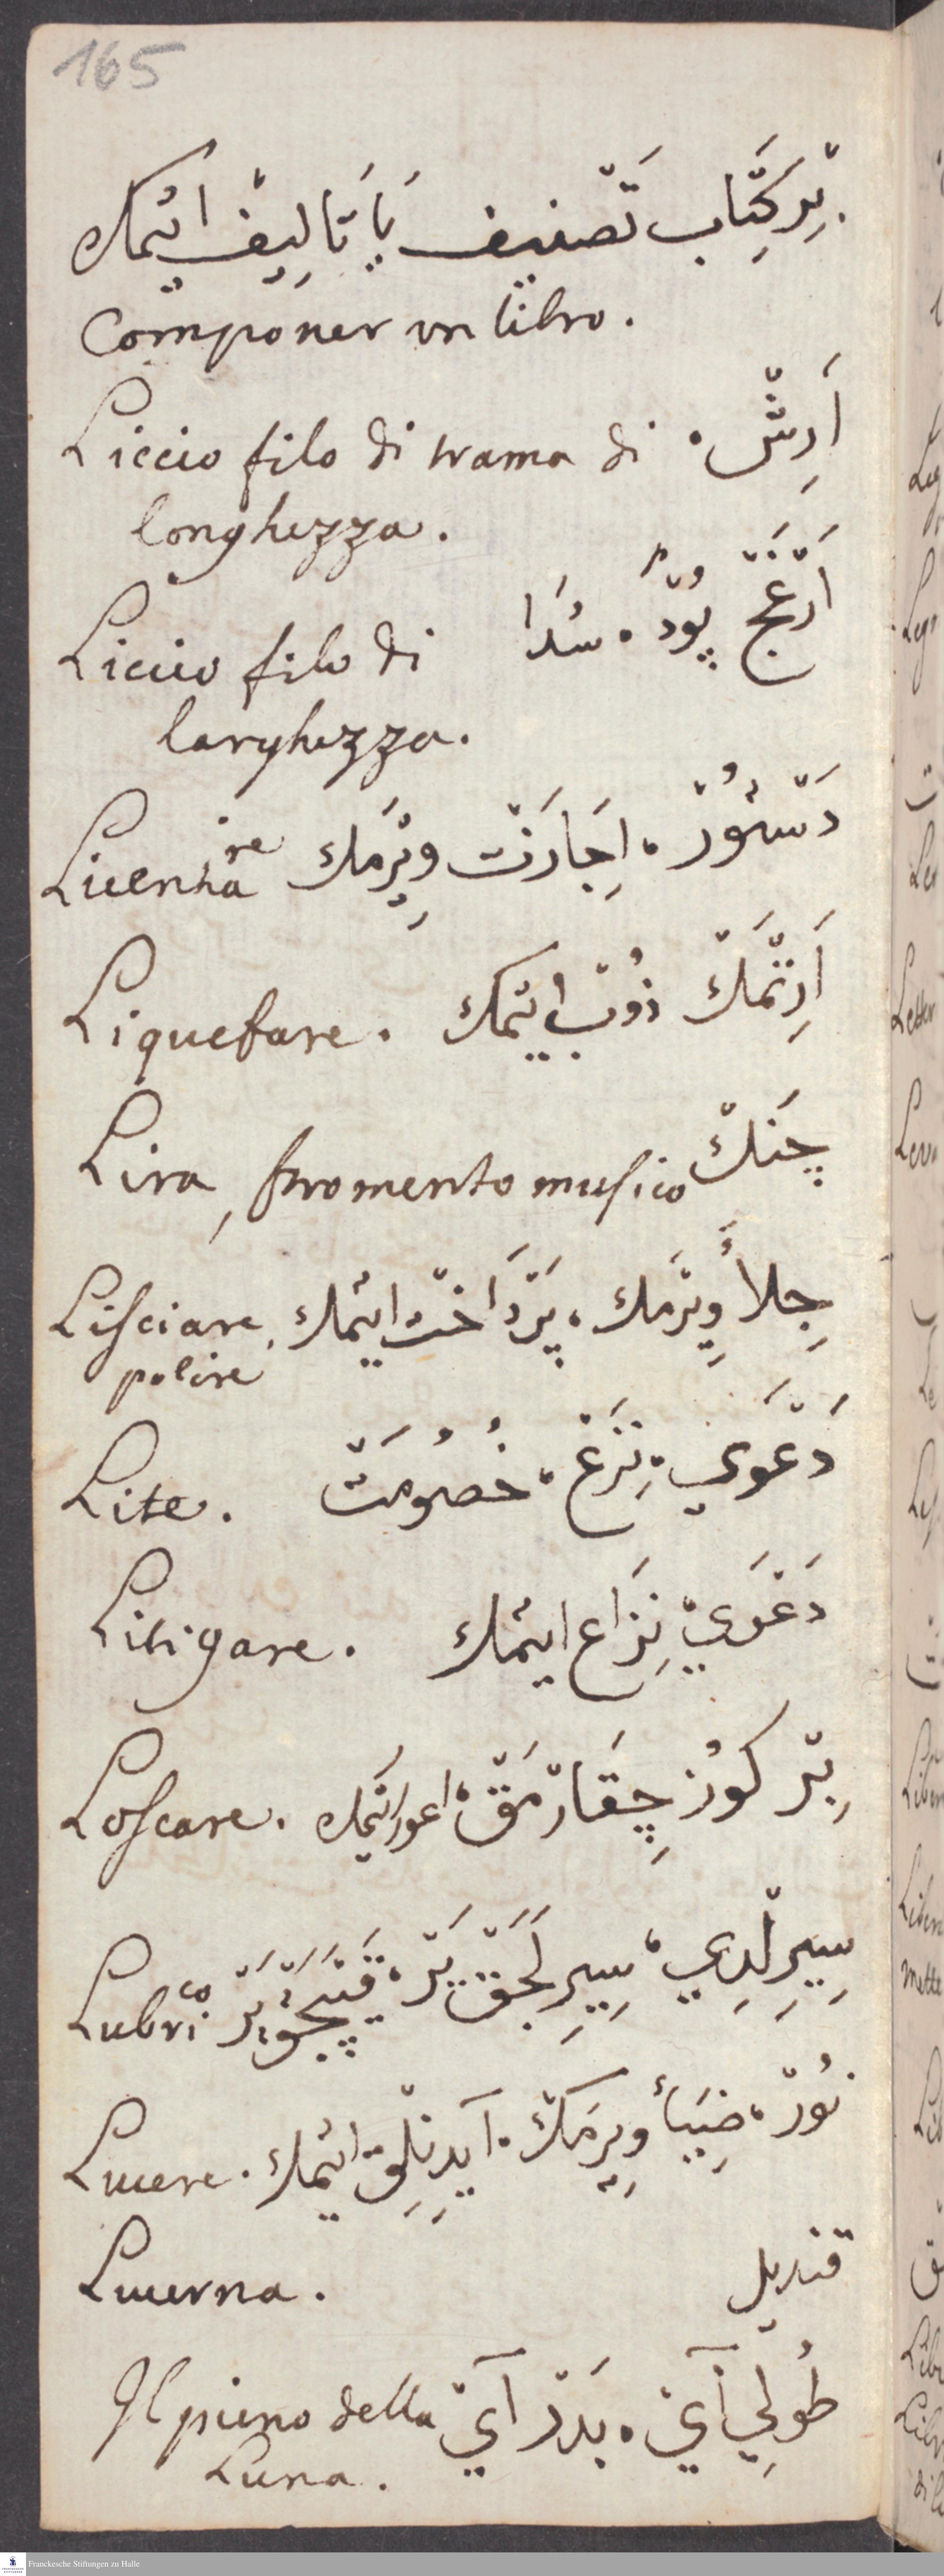 165
بِرْ كِتَاب تَصْنِيف يَا تَالِيفْ ايتْمك
Componer un libro.
Liccio filo di trama di اَرِشْ،
longhezza.
Liccio filo di اَرْغَجْ پُودْ، سُدَا
larghezza.
Licentiare دَسْتُورْ، اِجَازَتْ وِيْرمَك
Liquefare. اَرِتْمَكْ ذُوبْ ايتْمك
Lira, stromento musico چَنكْ
Lisciare, جِلاَ وِيرْمَك، پَرْدَاخْت ايتْمك
polire
Lite. دَعْوَي، نِزَعْ، خُصُومَتْ
Litigare. دَعْوَيْ نِزَاع ايتْمك
Loscare. بِرْ كوُز چِقَارْمَقْ، اعور ايتْمك
Lubrico سِيِرِلْدِي، سِيِرِلَجَقْ يَرْ، قَيَپَجُقْ يَرْ
Lucere. نُورْ، ضِيَأ وِيرمَكْ، آيدِنْلِقْ ايتْمك
Lucerna. قنديل
Il pieno della طُولِي آيْ، بَدَرْ آيْ
Luna.
Franckesche Stiftungen zu Halle